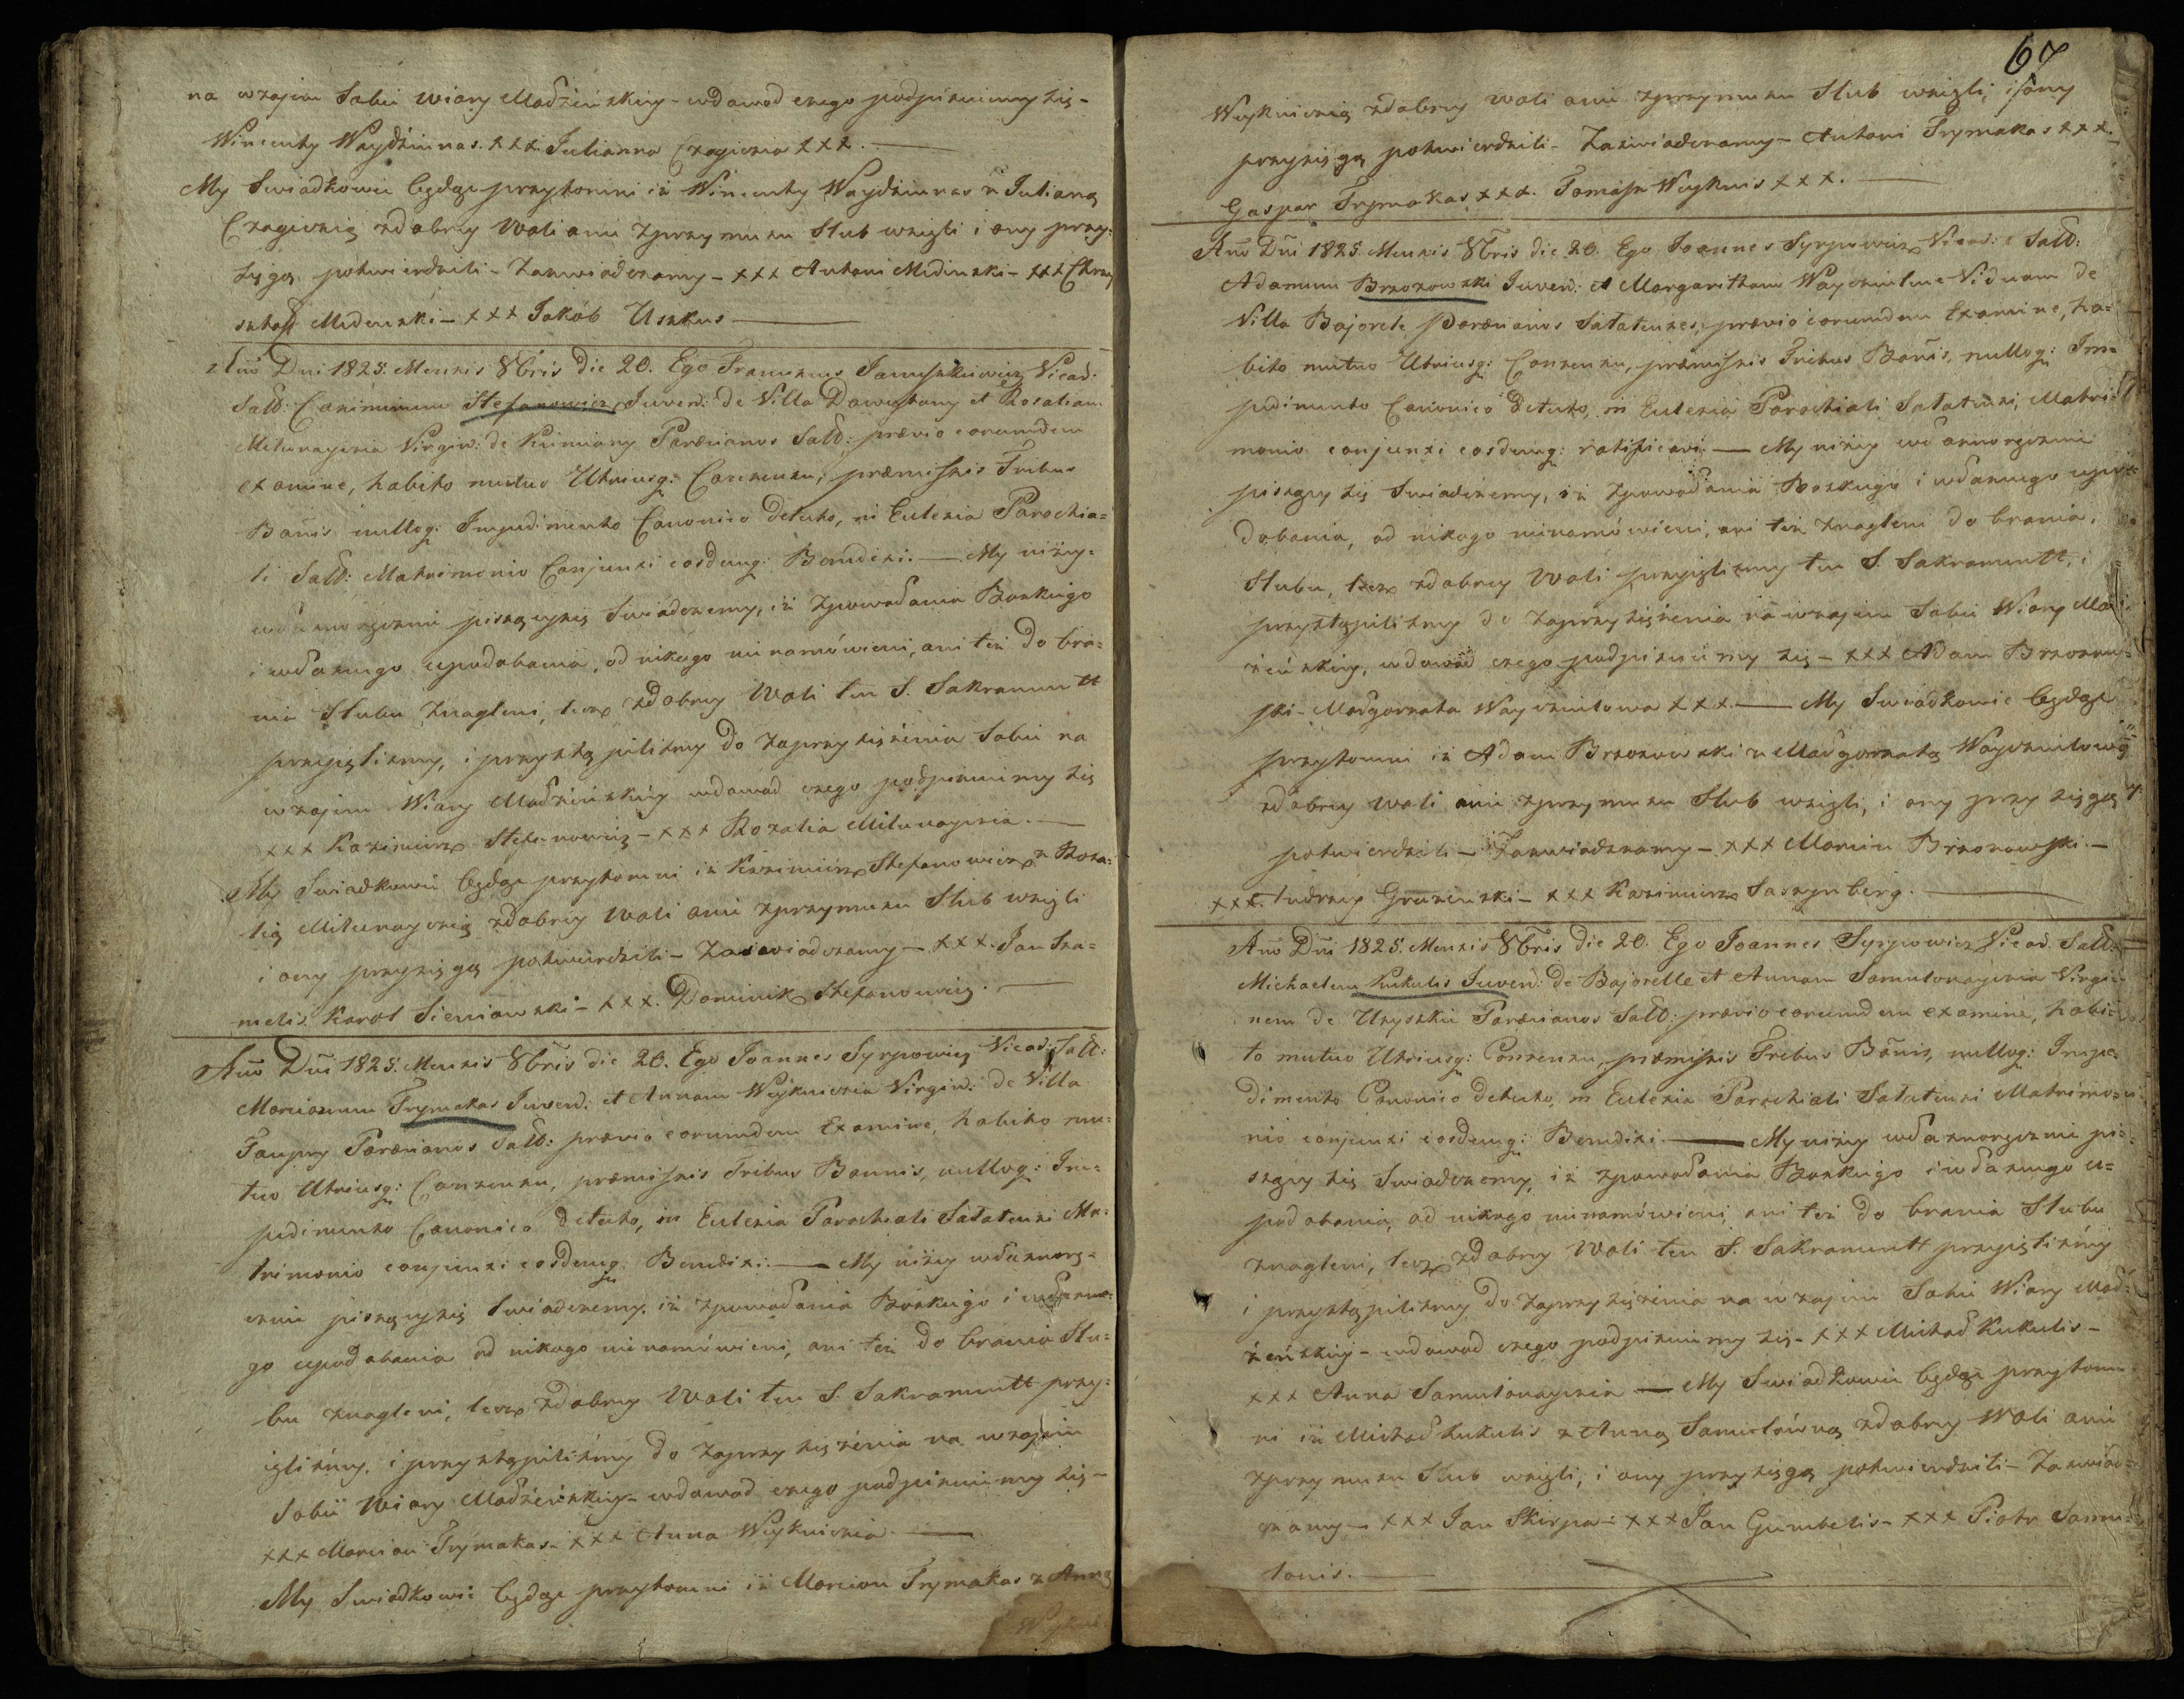 na wzajem Sobie wiary Małżeńskiey - wdowod czego podpisuiemy się -
Wincenty Waydżiunas. xxx Julianna Czagiewia xxx.
My Swiadkowie będąc przytomni iż Wincenty Waydżiunas z Julianą
zdobrey Woli ani zprzymusu Slub wzięli i ony przy:
sięgą potwierdzili - Zaswiadczamy - xxx Antoni Midinski - xxx Chrzy
sztof Midenski - xxx Jakób Uszkus
Año Dni 1825. Mensis 8bris die 20. Ego Franciscus Januszkiewicz Vicad:
Sałł: Casimirum Stefanowicz Juven: de Villa Dowgtany et Rosaliam
Milunaycia Virgin: de Kimiany Paræcianos Sałł: prævio eorumdem
examine, habito mutuo Utriusq: Consensu, præmissis Tribus
Bañis nulloq: Impedimento Canonico detecto, in Eclesia Parochia=
li Sałł: Matrimonio Conjunxi eosdemq: Benedixi. — My niżey=
własnoręcznie piszącysię Swiadczemy, iż zpowodania Boskiego
i własnego upodobania, od nikogo nienamówieni, ani też do bra=
nia Slubu znagleni, lecz zdobrey Woli ten S. Sakramentt
przyięlismy, i przystąpilismy do zaprzysiężenia Sobie na
wzajem Wiary Małżeńskiey wdowod czego podpisuiemy się
xxx Kazimierz Stefanowicz - xxx Rozalia Milunaycia.
My Swiadkowie będąc przytomni iż Kazimierz Stefanowicz z Roza=
lią Milunaycią zdobrey Woli ani zprzymusu Slub wzięli
i ony przysięgą potwierdzili - Zaswiadczamy - xxx. Jan Sza=
melis Karol Sieniawski - xxx. Dominik Stefanowicz.
Año Dñi 1825. Mensis 8bris die 20. Ego Joannes Syrpowicz Vicad: Sałł:
Marcianum Trymakas Juven: et Annam Weykniczia Virgin: de Villa
Paupry Paræcianos Sałł: prævio eorumdem Examine, habito mu=
tuo Utriusq: Consensu, præmissis Tribus Bannis, nulloq: Im=
pedimento Canonico detecto, in Eclesia Parochiali Sałatensi Ma=
trimonio conjunxi eosdemq: Benedixi. — My niżey własnorę=
cznie piszącysię Swiadczemy, iż zpowodania Boskiego i własne=
go upodobania od nikogo nienamówieni, ani też do brania Slu=
bu znagleni, lecz zdobrey Woli ten S. Sakramentt przy=
ięlismy, i przystąpilismy do zaprzysiężenia na wzajem
Sobie Wiary Małżeńskiey - wdowod czego podpisuiemy się -
xxx Marcian Trymakas - xxx Anna Weykniczia.
My Swiadkowie będąc przytomni iż Marcian Trymakas z Anną
67
Weykniczią zdobrey woli ani zprzymusu Slub wzięli, i ony
przysięgą potwierdzili - Zaswiadczamy - Antoni Trymakas xxx.
Gaspar Trymakas xxx. Tomasz Weyknis xxx.
Año Dñi 1825. Mensis 8bris die 20. Ego Joannes Syrpowicz Vicad: Sałł:
Adamum Brzozowski Juven: et Margaritham Wayczulewe Viduam de
Villa Bajorele Paræcianos Sałatenses, prævio eorumdem Examine, ha=
bito mutuo Utriusq: Consensu, præmissis Tribus Bañis, nulloq: Im=
pedimento Canonico detecto, in Eclesia Parochiali Sałatensi, Matri=
monio conjunxi eosdemq: ratificavi. — My niżey własnoręcznie
piszący się Swiadczemy, iż zpowodania Boskiego i własnego upo=
dobania, od nikogo nienamówieni, ani też znagleni do brania
Slubu, lecz zdobrey Woli przyięlismy ten S. Sakramentt, i
przystąpilismy do zaprzysiężenia na wzajem Sobie Wiary Mał=
żeńskiey, wdowod czego podpisuiemy się - xxx Adam Brzozow=
ski - Małgorzata Wayczulowa xxx. — My Swiadkowie będąc
przytomni iż Adam Brzozowski z Małgorzatą Wayczulową
zdobrey woli ani zprzymusu Slub wzięli, i ony przysięgą
potwierdzili - Zaswiadczamy - xxx Marcin Brzozowski. -
xxx. Andrzey Gruzenski - xxx Kazimierz Saszynberg.
Año Dñi 1825. Mensis 8bris die 20. Ego Joannes Syrpowicz Vicad. Sałł:
Michaelem Kukulis Juven: de Bajorelle et Annam Samulonaycia Virgi=
nem de Uzyszkie Paræcianos Sałł: prævio eorumdem examine, habi=
to mutuo Utriusq: Consensu, præmissis Tribus Bañis, nulloq: Impe=
dimento Canonico detecto, in Eclesia Parochiali Sałatensi Matrimo=
nio conjunxi eosdemq: Benedixi — My niżey własnoręcznie pi=
szący się Swiadczemy, iż zpowodania Boskiego i własnego u=
podobania, od nikogo nienamówieni, ani też do brania Slubu
znagleni, lecz zdobrey Woli ten S. Sakramentt przyięlismy
i przystąpilismy do zaprzysiężenia na wzajem Sobie Wiary Mał=
żeńskiey - wdowod czego podpisuiemy się - xxx Michał Kukulis -
xxx Anna Samulonaycia — My Swiadkowie będąc przytom
ni iż Michał Kukulis z Anną Samulówną zdobrey Woli ani
zprzymusu Slub wzięli, i ony przysięgą potwierdzili - Zaswiad=
czamy - xxx Jan Skirpa - xxx Jan Gumbelis - xxx Piotr Samu=
lonis.